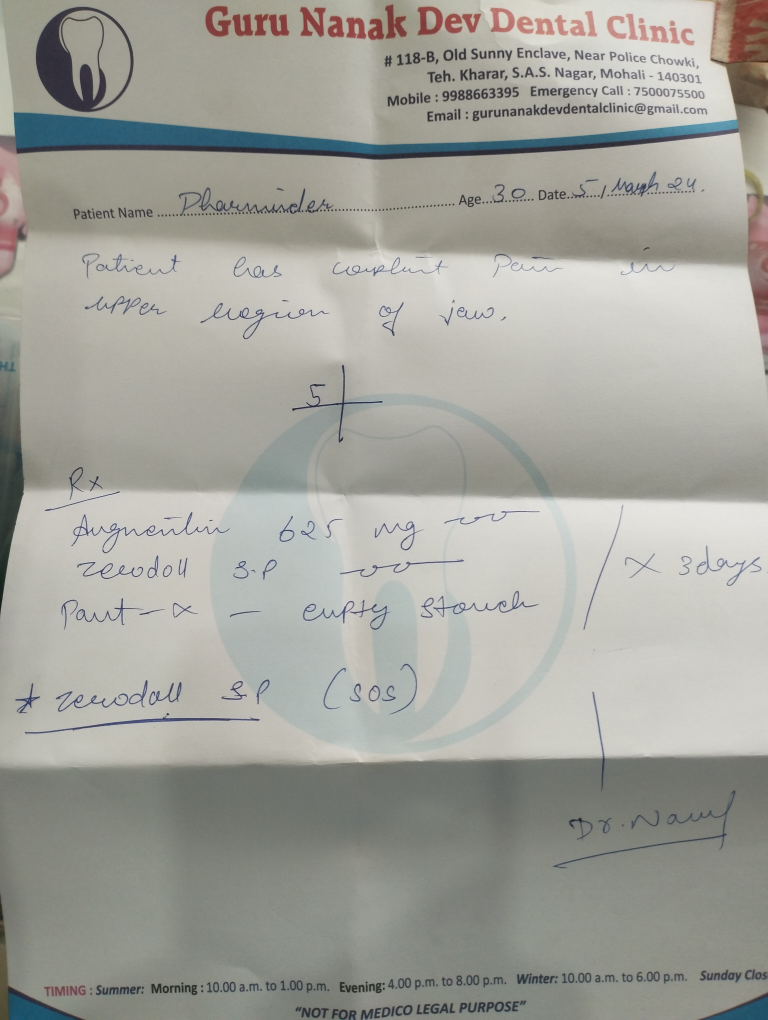 Guru Nanak Dev Dental Clinic
# 118-B, Old Sunny Enclave, Near Police Chowki,
Teh. Kharar, S.A.S. Nagar, Mohali - 140301
Mobile : 9988663395 Emergency Call : 7500075500
Email : gurunanakdevdentalclinic@gmail.com
Patient Name Dharminder Age 30 Date 5/March 24.
Patient has Pain in
upper region of jaw.
5
Rx
Augmentin 625 mg
zerodoll S.P
x 3days
Pant- - empty
* zerodoll S.P (SOS)
Dr.
TIMING : Summer: Morning : 10.00 a.m. to 1.00 p.m. Evening: 4.00 p.m. to 8.00 p.m. Winter: 10.00 a.m. to 6.00 p.m. Sunday Clos
"NOT FOR MEDICO LEGAL PURPOSE"